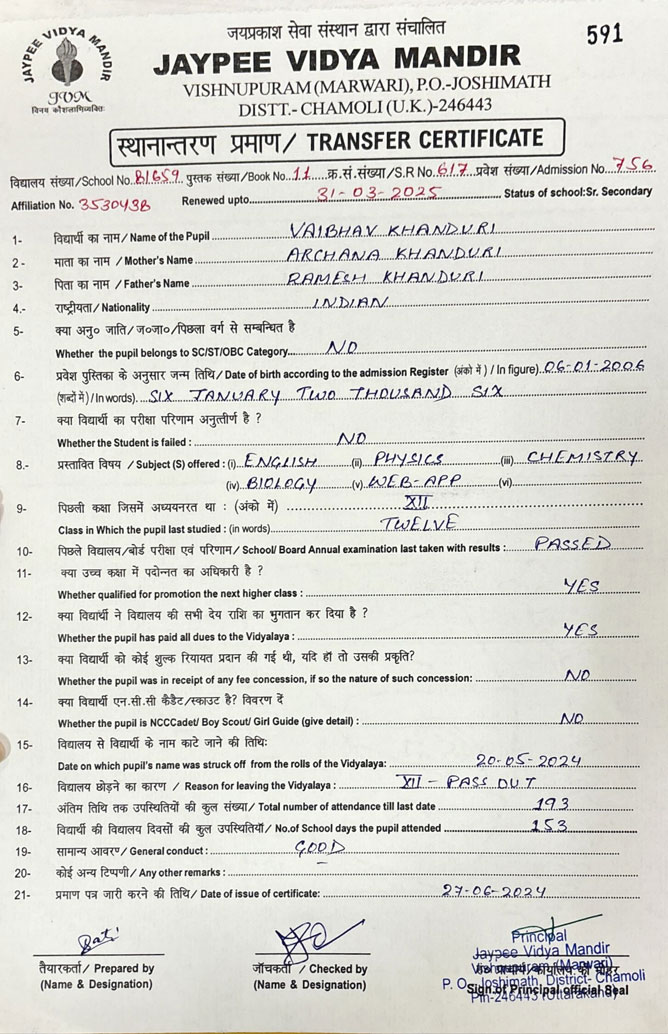 जयप्रकाश सेवा संस्थान द्वारा संचालित
591
JAYPEE VIDYA MANDIR
JVM
विनयं कौशलाभिव्यक्तिः
JAYPEE VIDYA MANDIR
VISHNUPURAM (MARWARI), P.O.-JOSHIMATH
DISTT.- CHAMOLI (U.K.)-246443
स्थानान्तरण प्रमाण/ TRANSFER CERTIFICATE
विद्यालय संख्या/School No. 81659 पुस्तक संख्या/Book No. 11 क्र.सं.संख्या/S.R No. 617 प्रवेश संख्या/Admission No. 756
Affiliation No. 3530438 Renewed upto 31-03-2025 Status of school:Sr. Secondary
1- विद्यार्थी का नाम/ Name of the Pupil VAIBHAV KHANDURI
2 - माता का नाम / Mother's Name ARCHANA KHANDURI
3- पिता का नाम / Father's Name RAMESH KHANDURI
4.- राष्ट्रीयता/ Nationality INDIAN
5- क्या अनु० जाति/ज०जा०/पिछला वर्ग से सम्बन्धित है
Whether the pupil belongs to SC/ST/OBC Category... NO
6- प्रवेश पुस्तिका के अनुसार जन्म तिथि/ Date of birth according to the admission Register (अंको में ) / In figure) 06-01-2006
(शब्दों में) / In words). SIX JANUARY TWO THOUSAND SIX
7- क्या विद्यार्थी का परीक्षा परिणाम अनुत्तीर्ण है ?
Whether the Student is failed : NO
8.- प्रस्तावित विषय / Subject (S) offered : (i) ENGLISH (ii) PHYSICS (iii) CHEMISTRY
(iv) BIOLOGY (v) WEB-APP (vi)
9- पिछली कक्षा जिसमें अध्ययनरत था : (अंको में) XII
Class in Which the pupil last studied : (in words) TWELVE
10- पिछले विद्यालय/बोर्ड परीक्षा एवं परिणाम/ School/ Board Annual examination last taken with results : PASSED
11- क्या उच्च कक्षा में पदोन्नत का अधिकारी है ?
Whether qualified for promotion the next higher class : YES
12- क्या विद्यार्थी ने विद्यालय की सभी देय राशि का भुगतान कर दिया है ?
Whether the pupil has paid all dues to the Vidyalaya : YES
13- क्या विद्यार्थी को कोई शुल्क रियायत प्रदान की गई थी, यदि हाँ तो उसकी प्रकृति?
Whether the pupil was in receipt of any fee concession, if so the nature of such concession: NO
14- क्या विद्यार्थी एन.सी.सी कैडैट/स्काउट है? विवरण दें
Whether the pupil is NCCCadet/ Boy Scout/ Girl Guide (give detail) : NO
15- विद्यालय से विद्यार्थी के नाम काटे जाने की तिथिः
Date on which pupil's name was struck off from the rolls of the Vidyalaya: 20-05-2024
16- विद्यालय छोड़ने का कारण / Reason for leaving the Vidyalaya : XII - PASS OUT
17- अंतिम तिथि तक उपस्थितियों की कुल संख्या/ Total number of attendance till last date 193
18- विद्यार्थी की विद्यालय दिवसों की कुल उपस्थितियॉ/ No.of School days the pupil attended 153
19- सामान्य आवरण/ General conduct : GOOD
20- कोई अन्य टिप्पणी/ Any other remarks :
21- प्रमाण पत्र जारी करने की तिथि/ Date of issue of certificate: 27-06-2024
तैयारकर्ता/ Prepared by
(Name & Designation)
जाँचकर्ता / Checked by
(Name & Designation)
Principal
Jaypee Vidya Mandir
Vishnupuram (Marwari)
P. O. Joshimath, District- Chamoli
Pin-246443 (Uttarakhand)
Sign.of Principal official Seal